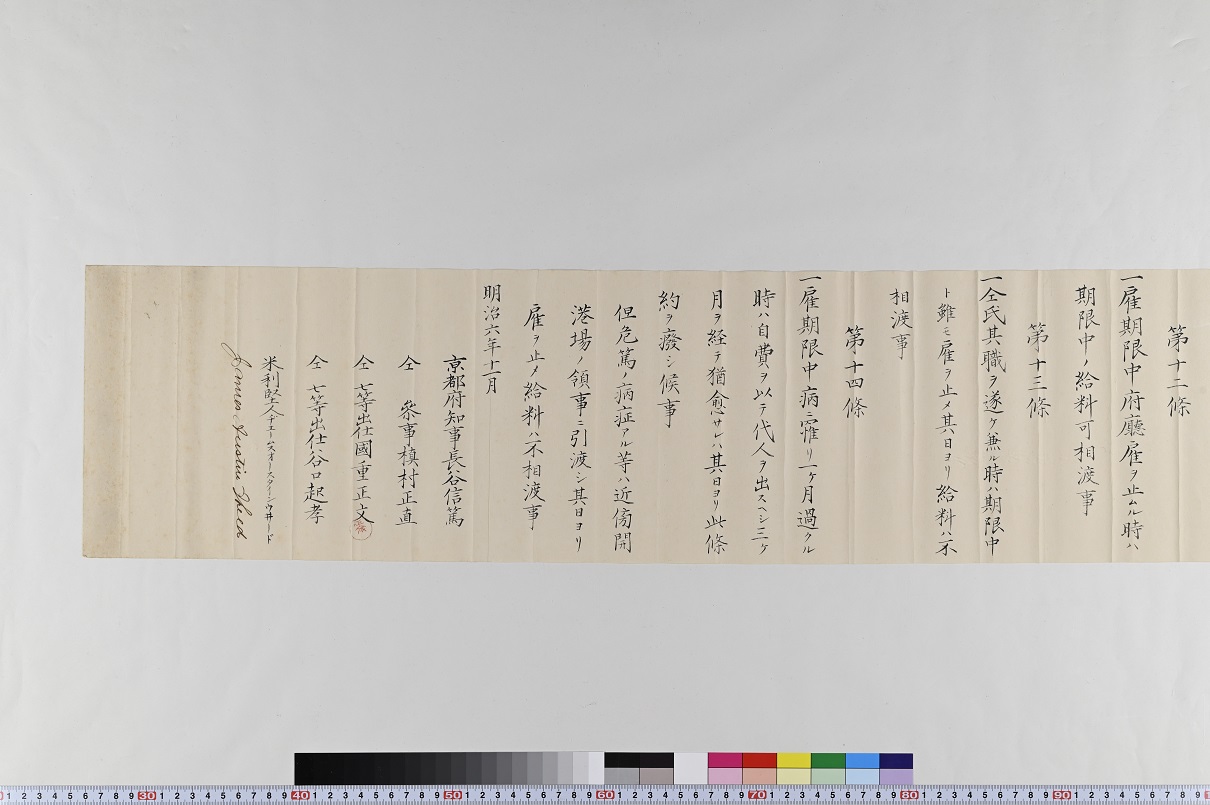 第十二條
一雇期限中府廳雇ヲ止ムル時ハ
期限中ノ給料可相渡事
第十三條
一仝氏其職ヲ遂ケ兼ル時ハ期限中
ト雖モ雇ヲ止メ其日ヨリ給料ハ不
相渡事
第十四條
一雇期限中病ニ罹リ一ケ月過クル
時ハ自費ヲ以テ代人ヲ出スヘシ三ケ
月ヲ経テ猶愈サレハ其日ヨリ此條
約ヲ廢シ候事
但危篤ノ病症アル等ハ近傍開
港場ノ領事ニ引渡シ其日ヨリ
雇ヲ止メ給料ハ不相渡事
明治六年十一月
京都府知事長谷信篤
仝 參事槙村正直
仝 七等出仕國重正文
仝 七等出仕谷口起孝
米利堅人チエームスオースターンウヰード
James Austin